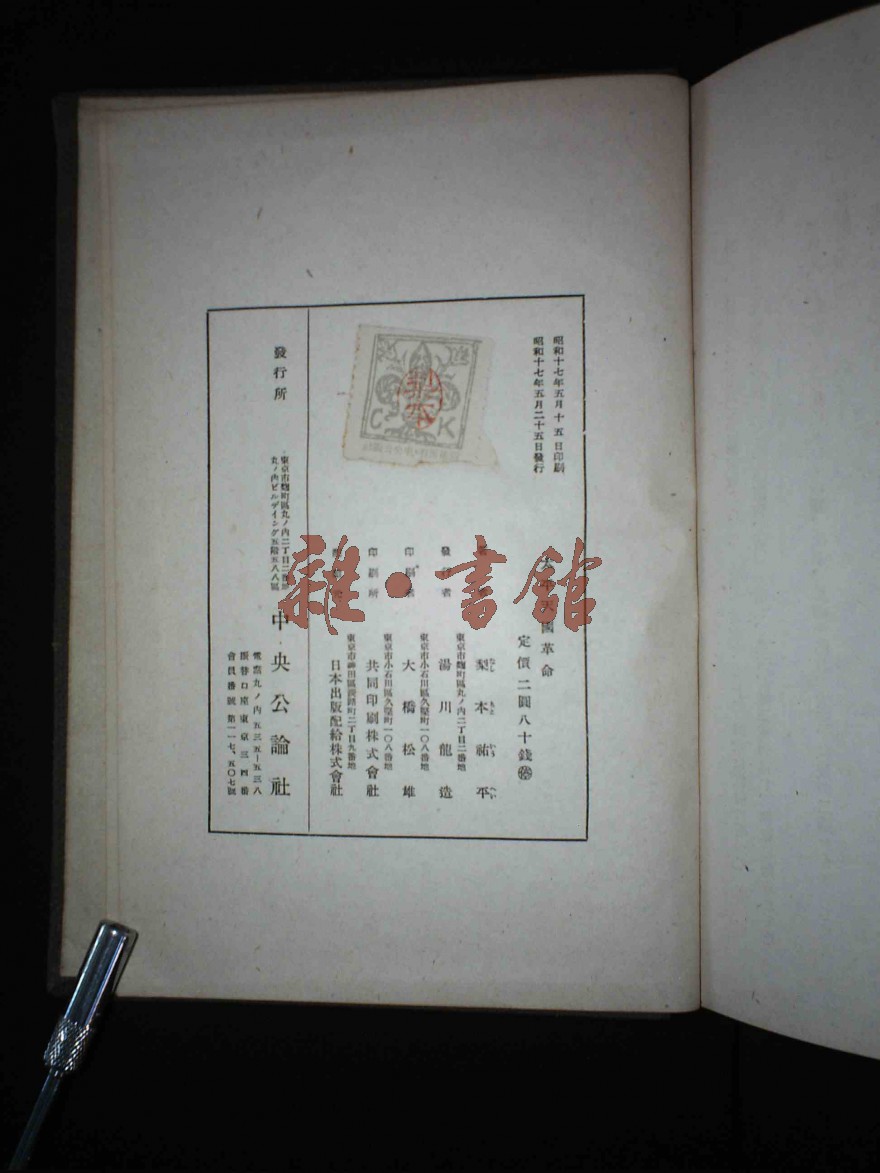 昭和十七年五月十五日印刷
昭和十七年五月二十五日發行
天國革命
定價二圓八十錢
梨本祐平
なし もと いう へい
發行者
東京市麴町區丸ノ内二丁目二番地
湯川龍造
印刷者
東京市小石川區久堅町一〇八番地
大橋松雄
印刷所
東京市小石川區久堅町一〇八番地
共同印刷株式會社
東京市神田區淡路町二丁目九番地
日本出版配給株式會社
發行所
東京市麴町區丸ノ内二丁目二番地
丸ノ内ビルデイング五階五八八區
中央公論社
電話丸ノ内五三五一五三八
振替口座東京三四番
會員番號 第一一七、五〇七號
C K
梨本
雜·書館